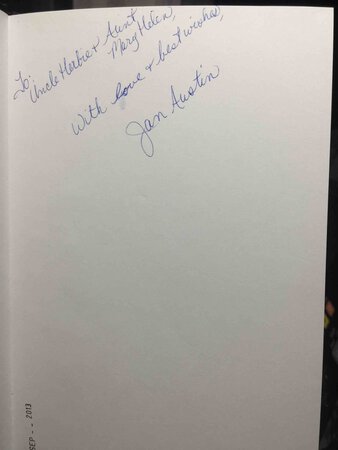 To:
Uncle Herbie & Aunt
Mary Helen,
With love & best wishes,
Jan Austin
SEP - - 2013